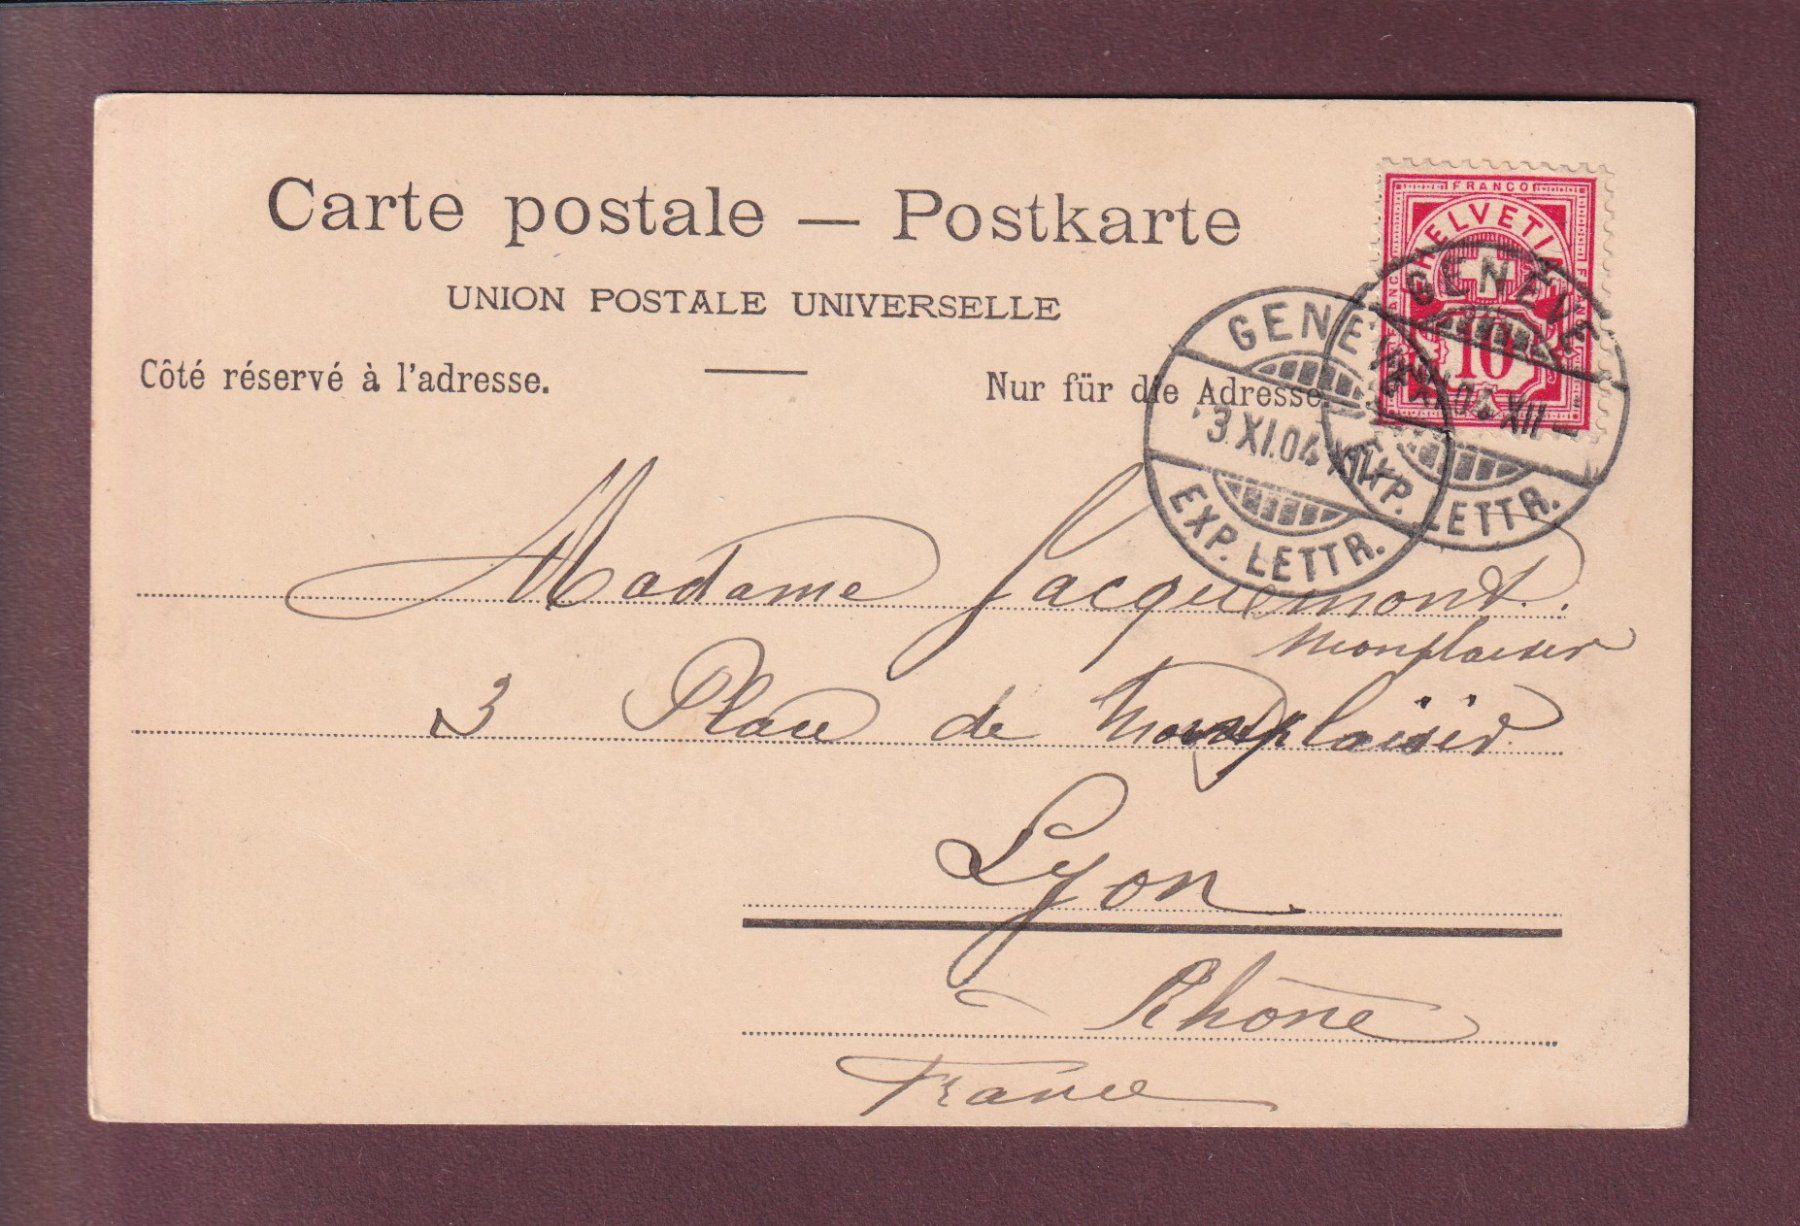 Carte postale — Postkarte
UNION POSTALE UNIVERSELLE
Côté réservé à l'adresse.
Nur für die Adresse.
FRANCO
HELVETIA
10
GENÈVE
EXP. LETTR.
GENÈVE
3.XI.04 XII
EXP. LETTR.
Madame Jacquemont.
Monplaisir
3 Place de Monplaisir
Lyon
Rhône
France